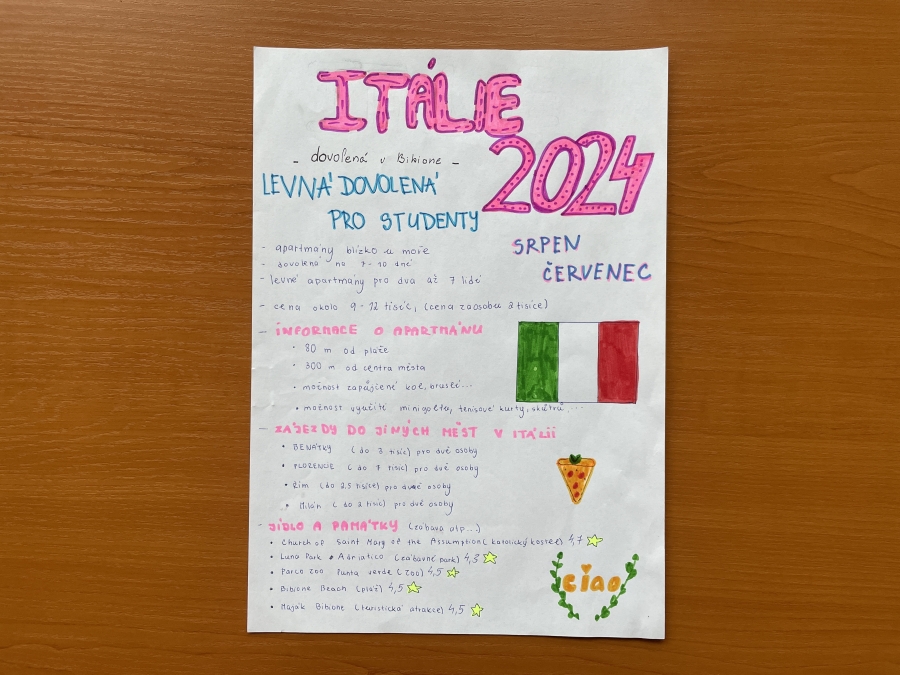 ITÁLIE
2024
- dovolená v Bibione -
LEVNÁ DOVOLENÁ
PRO STUDENTY
SRPEN
ČERVENEC
- apartmány blízko u moře
- dovolená na 7-10 dní
- levné apartmány pro dva až 7 lidí
- cena okolo 9-12 tisíc, (cena za osobu 3 tisíce)
- INFORMACE O APARTMÁNU
• 80 m od pláže
• 300 m od centra města
• možnost zapůjčené kol, bruslí...
• možnost využití minigolfu, tenisové kurty, skútrů,...
- ZÁJEZDY DO JINÝCH MĚST V ITÁLII
• BENÁTKY (do 3 tisíc) pro dvě osoby
• FLORENCIE (do 7 tisíc) pro dvě osoby
• Řím (do 2,5 tisíce) pro dvě osoby
• Milán (do 2 tisíc) pro dvě osoby
- JÍDLO A PAMÁTKY (zábava atp...)
• Church of Saint Mary of the Assumption (katolický kostel) 4,7
• Luna Park Adriatico (zábavné park) 4,3
• Parco Zoo Punta verde (Zoo) 4,5
• Bibione Beach (pláž) 4,5
• Maják Bibione (turistická atrakce) 4,5
ciao